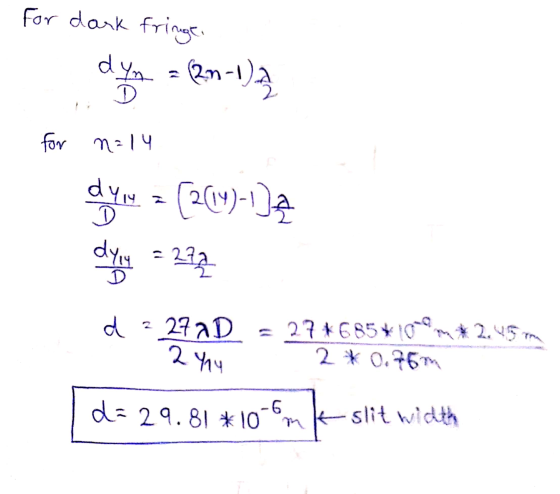 For dark fringe.
d yn / D = (2n-1) λ/2
for n=14
d y14 / D = [2(14)-1] λ/2
d y14 / D = 27λ/2
d = 27λD / 2 y14 = 27*685*10^-9 m * 2.45 m / 2 * 0.76m
d= 29.81 *10^-6 m ← slit width